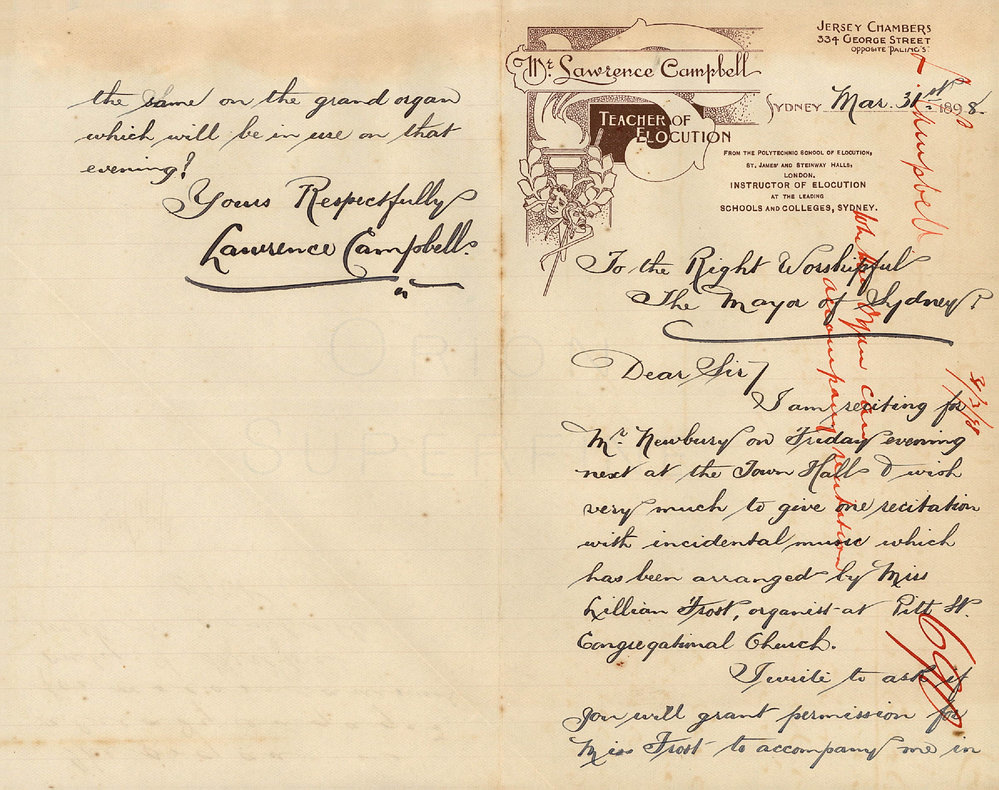 JERSEY CHAMBERS
334 GEORGE STREET
OPPOSITE PALING'S.
Mr. Lawrence Campbell
SYDNEY Mar. 31st 1898.
TEACHER OF
ELOCUTION
FROM THE POLYTECHNIC SCHOOL OF ELOCUTION,
ST. JAMES' AND STEINWAY HALLS,
LONDON.
INSTRUCTOR OF ELOCUTION
AT THE LEADING
SCHOOLS AND COLLEGES, SYDNEY.
To the Right Worshipful
The Mayor of Sydney.
Dear Sir
I am reciting for
Mr. Newbury on Friday evening
next at the Town Hall & wish
very much to give one recitation
with incidental music which
has been arranged by Miss
Lillian Frost, organist at Pitt St.
Congregational Church.
I write to ask if
you will grant permission for
Miss Frost to accompany me in
the same on the grand organ
which will be in use on that
evening?
Yours Respectfully
Lawrence Campbell.
L. Campbell
Whether Organ can
accompany recitation
ORION